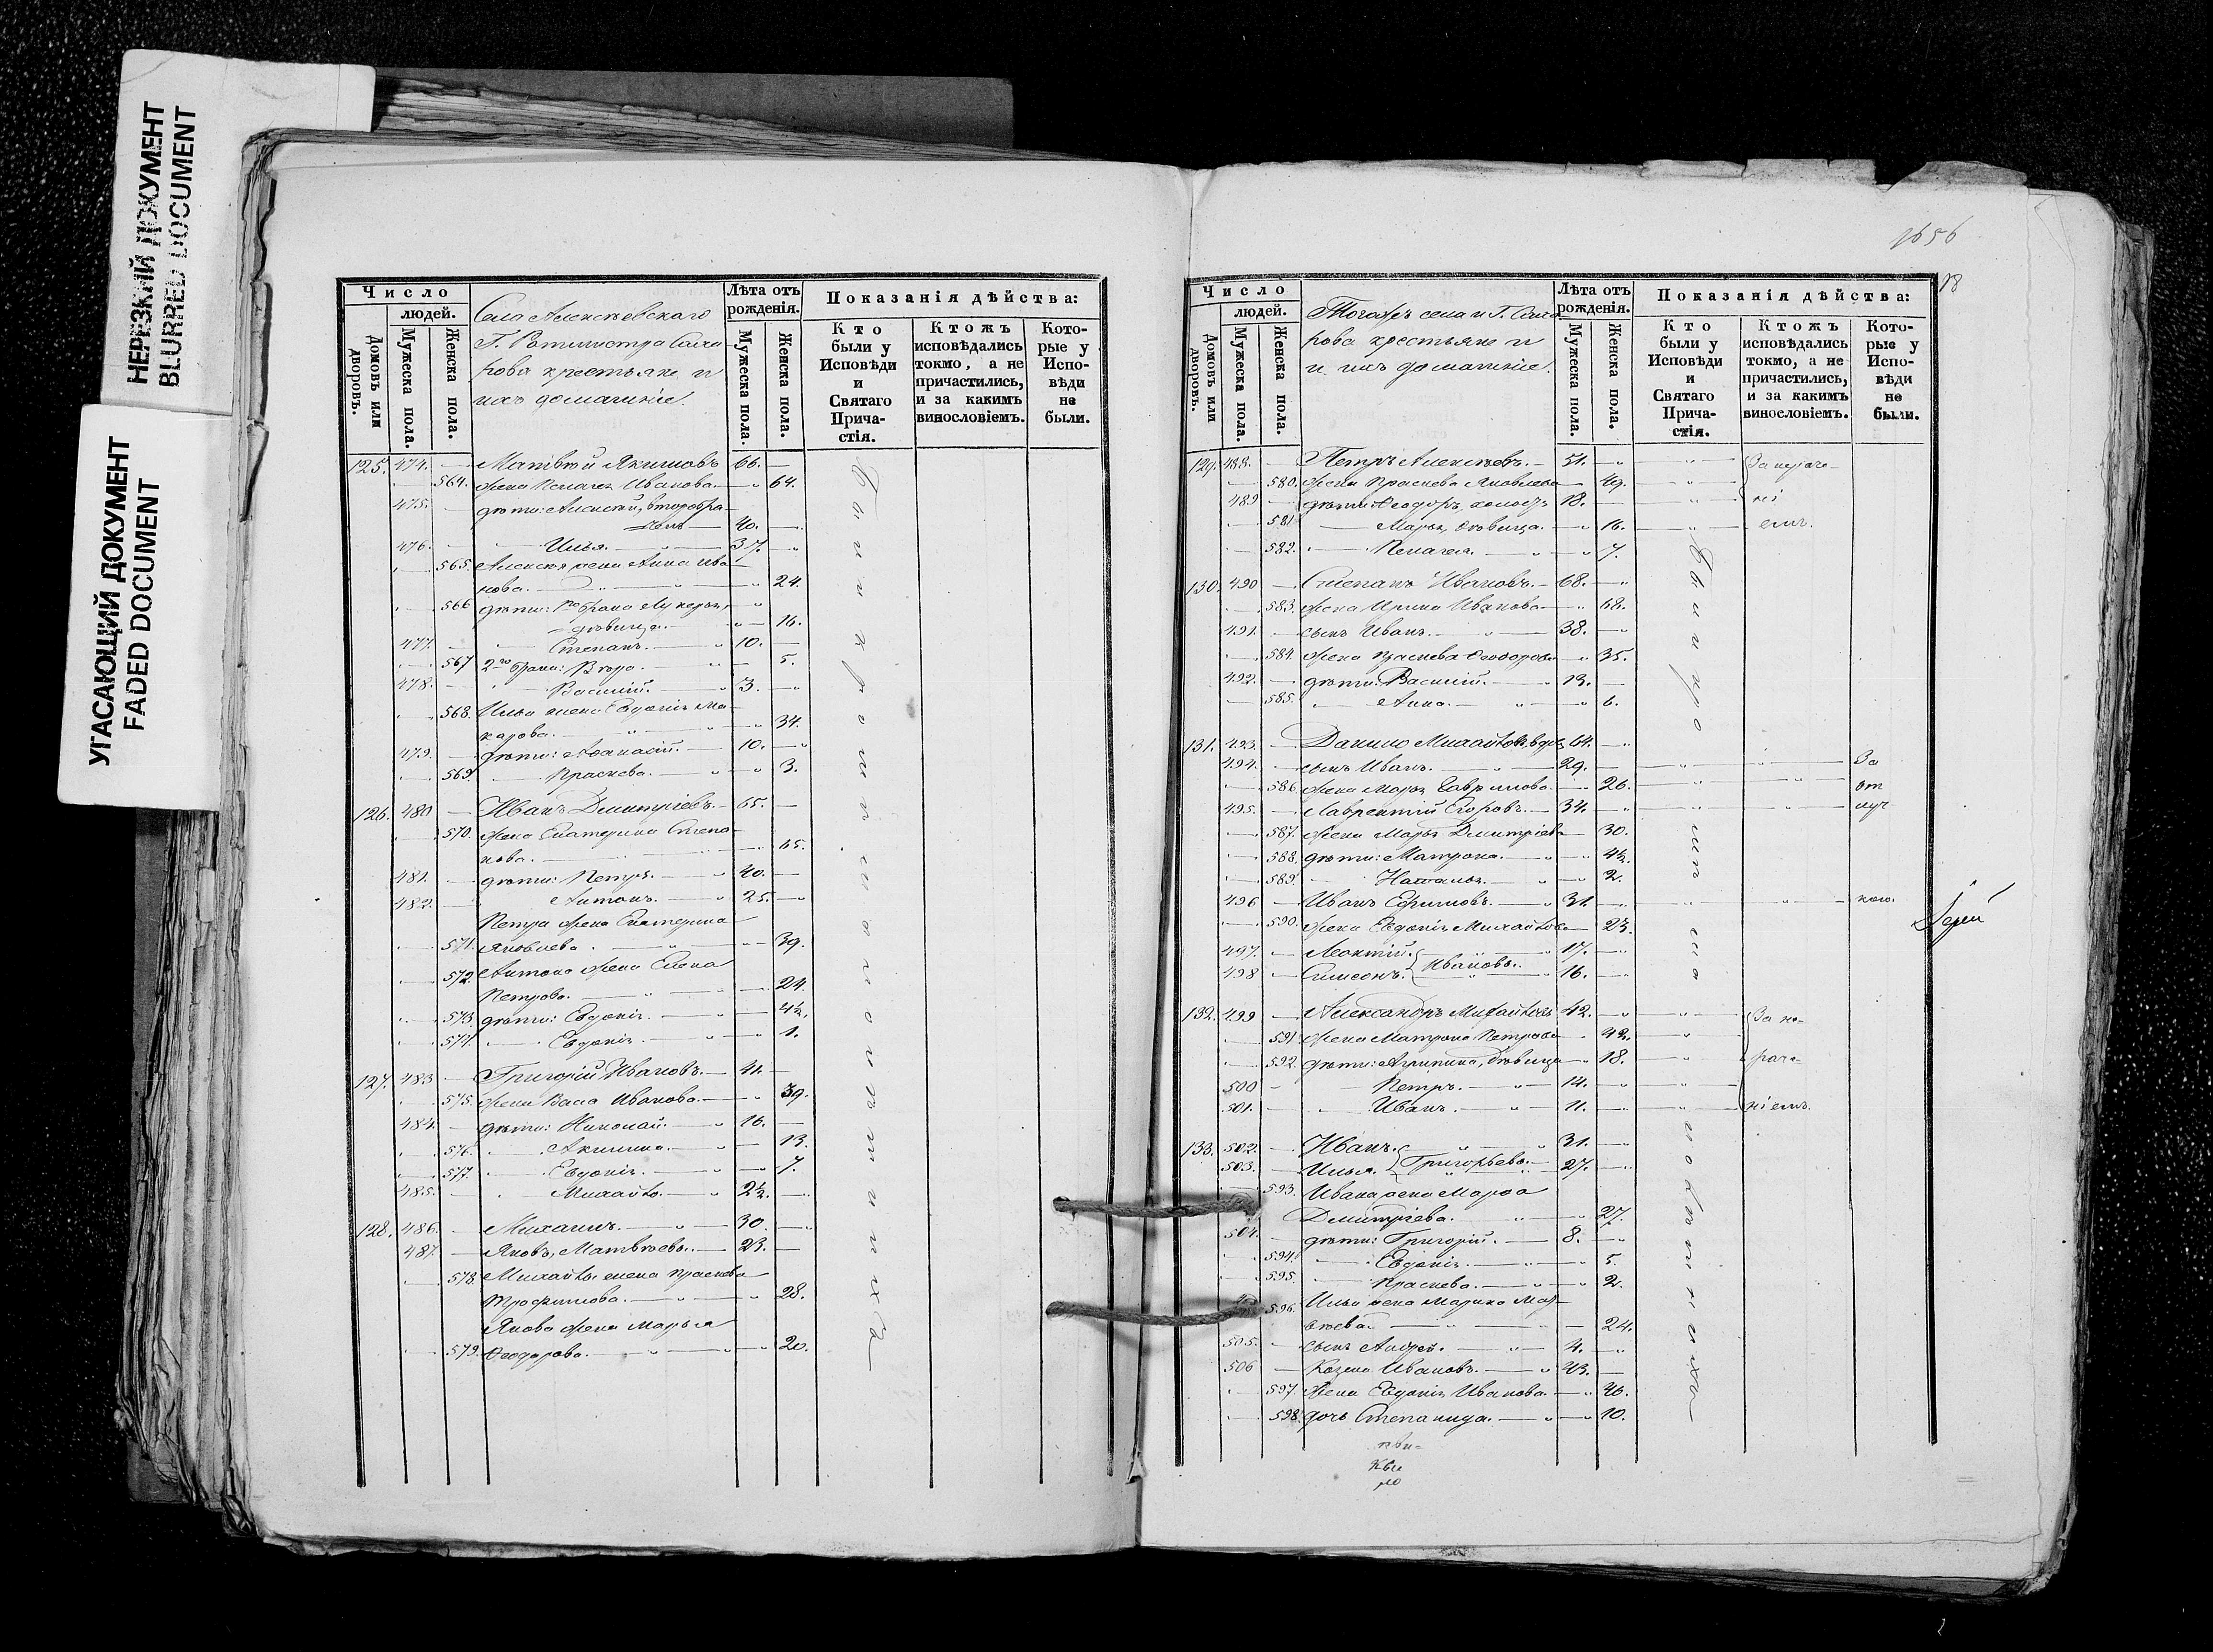 НЕРЕЗКИЙ ДОКУМЕНТ
BLURRED DOCUMENT
УГАСАЮЩИЙ ДОКУМЕНТ
FADED DOCUMENT
Число
людей.
Домовъ или дворовъ.
Мужеска пола.
Женска пола.
Села Алексѣевскаго
Г. Ротмистра Саха-
рова крестьяне и
ихъ домашніе.
Лѣта отъ рожденія.
Мужеска пола.
Женска пола.
Показанія дѣйства:
Кто были у Исповѣди и Святаго Прича-стія.
Ктожъ исповѣдались токмо, а не причастились, и за какимъ винословіемъ.
Кото-рые у Испо-вѣди не были.
125. 474. — Матвѣй Якимовъ 66. —
564. жена Пелагея Иванова. — 64.
475. дѣти: Алексѣй, второбра-
чен. — 40. —
476. — Илья. — 37. —
565. Алексѣя жена Анна Ива-
нова. — 24.
566 дѣти: 1го брака Лукерья,
дѣвица. — 16.
477. — Степанъ. — 10. —
567 2го брака: Вѣра. — 5.
478. — Василій. — 3. —
568. Ильи жена Евдокія Ма-
карова. — 34.
479. — дѣти: Аѳанасій. — 10. —
569. — Праскева. — 3.
126. 480 — Иванъ Дмитріевъ. — 65. —
570. жена Екатерина Степа-
нова. — 65.
481. — дѣти: Петръ. — 40. —
482. — Антонъ. — 25. —
Петра жена Екатерина
571. Яковлева. — 39.
572. Антона жена Елена
Петрова. — 24.
573. дѣти: Евдокія. — 4½.
574. — Евдокія. — 1.
127. 483 — Григорій Ивановъ. — 41. —
575. жена Васа Иванова. — 39.
484. — дѣти: Николай. — 16. —
576. — Акилина. — 13.
577. — Евдокія. — 7.
485. — Михайло. — 2½. —
128. 486. — Михаилъ. — 30. —
487. — Яковъ, Матвѣевы. — 23. —
578. Михайлы жена Праскева
Трофимова. — 28.
Якова жена Марья
579. Ѳеодорова. — 20.
1656
18
Число
людей.
Домовъ или дворовъ.
Мужеска пола.
Женска пола.
Тогожъ села и Г. Саха-
рова крестьяне и
и ихъ домашніе.
Лѣта отъ рожденія.
Мужеска пола.
Женска пола.
Показанія дѣйства:
Кто были у Исповѣди и Святаго Прича-стія.
Ктожъ исповѣдались токмо, а не причастились, и за какимъ винословіемъ.
Кото-рые у Испо-вѣди не были.
129. 488. — Петръ Алексѣевъ. — 51. —
580. жена Праскева Яковлева — 49.
489 — дѣти: Ѳеодоръ, холостъ 18. —
581 — Марья, дѣвица. — 16.
582. — Пелагея. — 7.
130. 490 — Степанъ Ивановъ. — 68. —
583. жена Ирина Иванова — 68.
491. — сынъ Иванъ. — 38. —
584. жена Праскева Ѳеодорова — 35.
492. — дѣти: Василій. — 13. —
585. — Анна. — 6.
131. 493. — Данило Михайловъ, вдовъ 64. —
494. — сынъ Иванъ. — 29. — За
586. жена Марья Гаврилова. — 26. от
495. — Лаврентій Егоровъ. — 34. — луч-
587. жена Марья Дмитріева — 30.
588. дѣти: Матрона. — 4½.
589. — Наталья. — 2.
496 — Иванъ Ефимовъ. — 31. — кою.
590. жена Евдокія Михайлова — 23.
497. — Леонтій. } Ивановы. 17. —
498 — Симеонъ. } — 16. —
132. 499 — Александръ Михайловъ 42. — За не-
591 жена Матрона Петрова — 43.
592. дѣти: Агрипина, дѣвица — 18. раче-
500 — Петръ. — 14. —
501. — Иванъ. — 11. — ніемъ.
133. 502. — Иванъ. — 31. —
503. — Илья. } Григорьевы. — 27. —
593. Ивана жена Марѳа
Дмитріева. — 27.
504. — дѣти: Григорій. — 8. —
594. — Евдокія. — 5.
595. — Праскева. — 2.
596. Ильи жена Марина Мат-
вѣева. — 24.
505. — сынъ Андрей. — 4. —
506 — Козма Ивановъ. — 43. —
597. жена Евдокія Иванова. — 46.
598. дочь Степанида. — 10.
Іерей